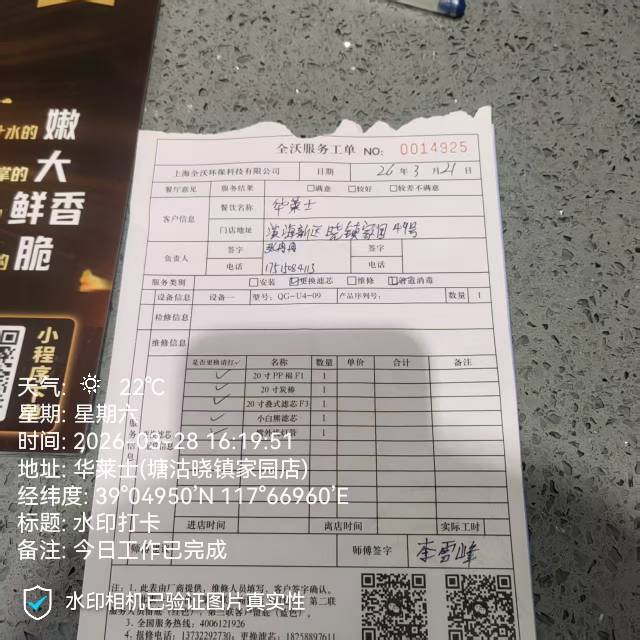 水的 嫩
掌的 大
鲜香
的 脆
小程序
全沃服务工单 NO: 0014925
上海全沃环保科技有限公司 日期 26 年 3 月 21 日
餐厅意见 服务结果 □满意 □较好 □较差不满意
客户信息 餐饮名称 华莱士
门店地址 滨海新区晓镇家园49号
负责人 签字 签字
电话 电话
服务类别 □安装 ☑更换滤芯 □维修 ☑管道消毒
设备信息 设备一 型号: QG-U4-09 产品序列号: 数量 1
检修信息
维修信息
是否更换请打✓ 名称 数量 单价 合计 备注
✓ 20寸PP棉F1 1
✓ 20寸炭棒 1
✓ 20寸叠式滤芯F3 1
✓ 小白熊滤芯 1
1
进店时间 离店时间 实际工时
师傅签字 李雪峰
注: 1. 此表由厂商提供、维修人员填写、客户签字确认。
3. 全国服务热线: 4006121926
4. 报修电话: 13732292730; 更换滤芯: 18258897611
天气: 22℃
星期: 星期六
时间: 2026-03-28 16:19:51
地址: 华莱士(塘沽晓镇家园店)
经纬度: 39°04950'N 117°66960'E
标题: 水印打卡
备注: 今日工作已完成
水印相机已验证图片真实性